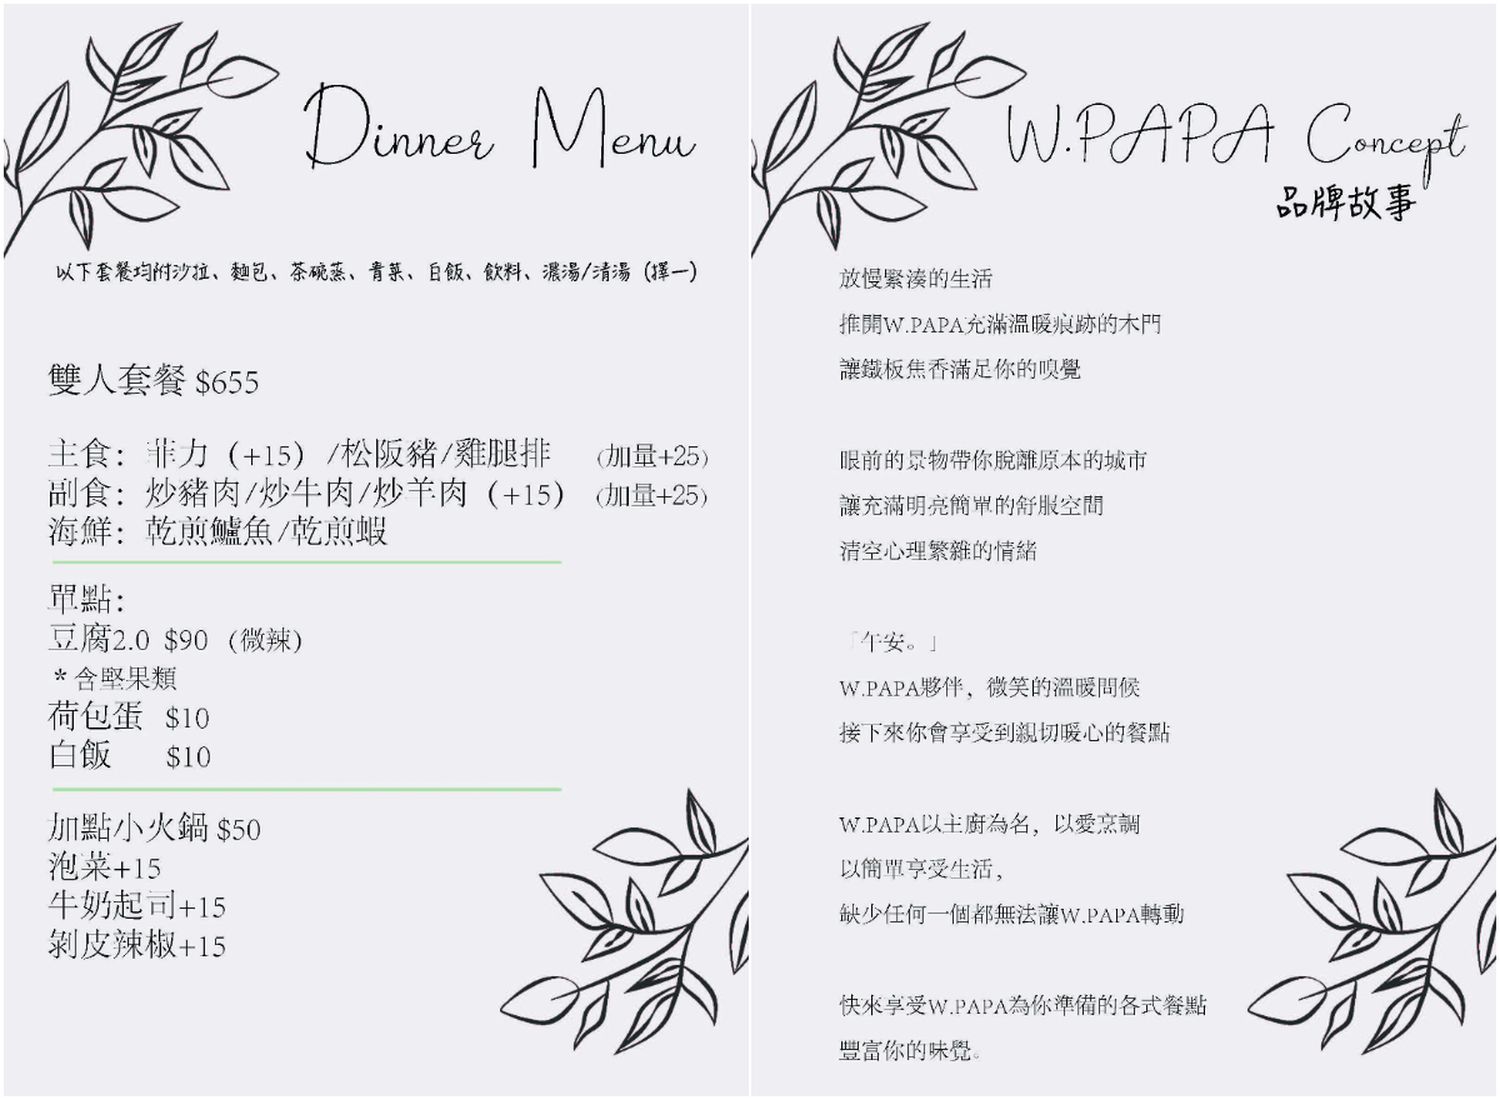 Dinner Menu
以下套餐均附沙拉、麵包、茶碗蒸、青菜、白飯、飲料、濃湯/清湯（擇一）
雙人套餐 $655
主食：菲力（+15）/松阪豬/雞腿排 （加量+25）
副食：炒豬肉/炒牛肉/炒羊肉（+15） （加量+25）
海鮮：乾煎鱸魚/乾煎蝦
單點：
豆腐2.0 $90 （微辣）
*含堅果類
荷包蛋 $10
白飯 $10
加點小火鍋 $50
泡菜+15
牛奶起司+15
剝皮辣椒+15
W.PAPA Concept
品牌故事
放慢緊湊的生活
推開W.PAPA充滿溫暖痕跡的木門
讓鐵板焦香滿足你的嗅覺
眼前的景物帶你脫離原本的城市
讓充滿明亮簡單的舒服空間
清空心理繁雜的情緒
「午安。」
W.PAPA夥伴，微笑的溫暖問候
接下來你會享受到親切暖心的餐點
W.PAPA以主廚為名，以愛烹調
以簡單享受生活，
缺少任何一個都無法讓W.PAPA轉動
快來享受W.PAPA為你準備的各式餐點
豐富你的味覺。